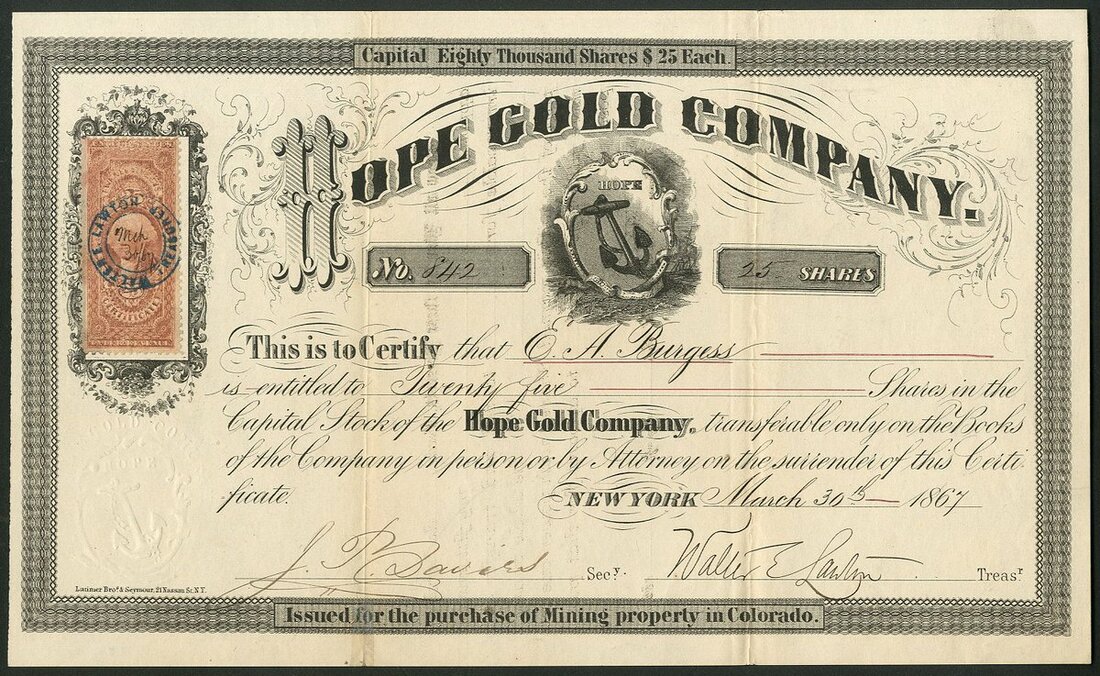 Capital Eighty Thousand Shares $ 25 Each.
HOPE GOLD COMPANY.
HOPE
No. 842
25 SHARES
WALTER E. LAWTON TREASURER
Mch 30/67
CERTIFICATE
This is to Certify that E. A. Burgess
is entitled to Twenty five Shares in the
Capital Stock of the Hope Gold Company, transferable only on the Books
of the Company in person or by Attorney on the surrender of this Certi
ficate.
NEW YORK March 30th 1867
GOLD COM
HOPE
J. P. Davies Secy.
Walter E Lawton Treasr
Latimer Bros. & Seymour, 21 Nassau St. N.Y.
Issued for the purchase of Mining property in Colorado.